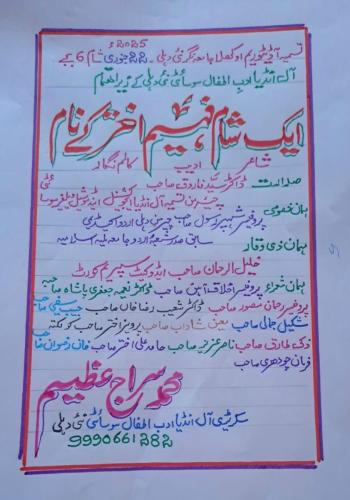 2025ء
تسمیہ آڈیٹوریم اوکھلا جامعہ نگر نئی دہلی۔ 22 جنوری شام 6 بجے
آل انڈیا ادب اطفال سوسائٹی نئی دہلی کے زیر اہتمام
ایک شام فہیم اختر کے نام
شاعر ادیب کالم نگار
صدارت ڈاکٹر سید فاروق صاحب
چیئرمین تسمیہ آل انڈیا ایجوکیشنل اینڈ سوشیل ویلفیر سوسائٹی
مہمان خصوصی پروفیسر شہپر رسول صاحب چیرمین دہلی اردو اکیڈمی
سابق صدر شعبۂ اردو جامعہ ملیہ اسلامیہ
مہمان ذی وقار
خلیل الرحمان صاحب ایڈوکیٹ سپریم کورٹ
مہمان شعراء پروفیسر اخلاق آہن صاحب ڈاکٹر نعیمہ جعفری پاشا صاحبہ
پروفیسر رحمان مصور صاحب ڈاکٹر شعیب رضا خاں صاحب حبیب سیفی صاحب
شکیل جمالی صاحب معین شاداب صاحب پرویز اختر صاحب کولکتہ
ذکی طارق صاحب ناصر عزیز صاحب حامد علی اختر صاحب خان رضوان صاحب
فرمان چودھری صاحب
محمد سراج عظیم
سکریٹری آل انڈیا ادب اطفال سوسائٹی نئی دہلی
9990661282